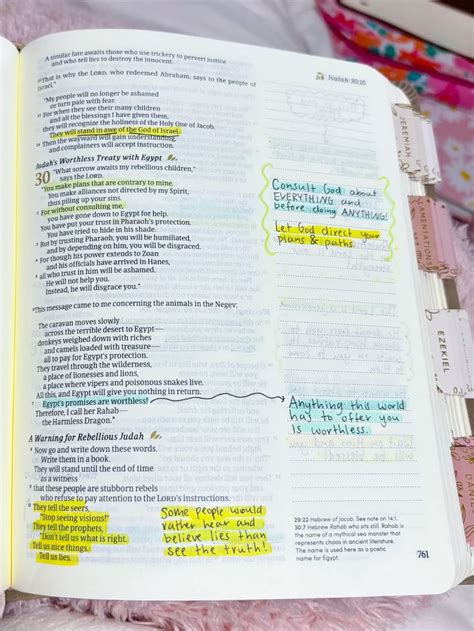 A similar fate awaits those who use trickery to pervert justice
and who tell lies to destroy the innocent.
22 That is why the LORD, who redeemed Abraham, says to the people of
Israel,
"My people will no longer be ashamed
or turn pale with fear.
23 For when they see their many children
and all the blessings I have given them,
they will recognize the holiness of the Holy One of Jacob.
They will stand in awe of the God of Israel.
24 Then the wayward will gain understanding,
and complainers will accept instruction.
Judah's Worthless Treaty with Egypt
30 "What sorrow awaits my rebellious children,"
says the LORD.
"You make plans that are contrary to mine.
You make alliances not directed by my Spirit,
thus piling up your sins.
2 For without consulting me,
you have gone down to Egypt for help.
You have put your trust in Pharaoh's protection.
You have tried to hide in his shade.
3 But by trusting Pharaoh, you will be humiliated,
and by depending on him, you will be disgraced.
4 For though his power extends to Zoan
and his officials have arrived in Hanes,
5 all who trust in him will be ashamed.
He will not help you.
Instead, he will disgrace you."
6 This message came to me concerning the animals in the Negev:
The caravan moves slowly
across the terrible desert to Egypt—
donkeys weighed down with riches
and camels loaded with treasure—
all to pay for Egypt's protection.
They travel through the wilderness,
a place of lionesses and lions,
a place where vipers and poisonous snakes live.
All this, and Egypt will give you nothing in return.
7 Egypt's promises are worthless!
Therefore, I call her Rahab—
the Harmless Dragon.*
A Warning for Rebellious Judah
8 Now go and write down these words.
Write them in a book.
They will stand until the end of time
as a witness
9 that these people are stubborn rebels
who refuse to pay attention to the LORD's instructions.
10 They tell the seers,
"Stop seeing visions!"
They tell the prophets,
"Don't tell us what is right.
Tell us nice things.
Tell us lies.
Some people would
rather hear and
believe lies than
see the truth!
Isaiah 30:10
Consult God about
EVERYTHING and
before doing ANYTHING!
Let God direct your
plans & paths.
Anything this world
has to offer you
is worthless.
29:22 Hebrew of Jacob. See note on 14:1.
30:7 Hebrew Rahab who sits still. Rahab is
the name of a mythical sea monster that
represents chaos in ancient literature.
The name is used here as a poetic
name for Egypt.
761
JEREMIAH
LAMENTATIONS
EZEKIEL